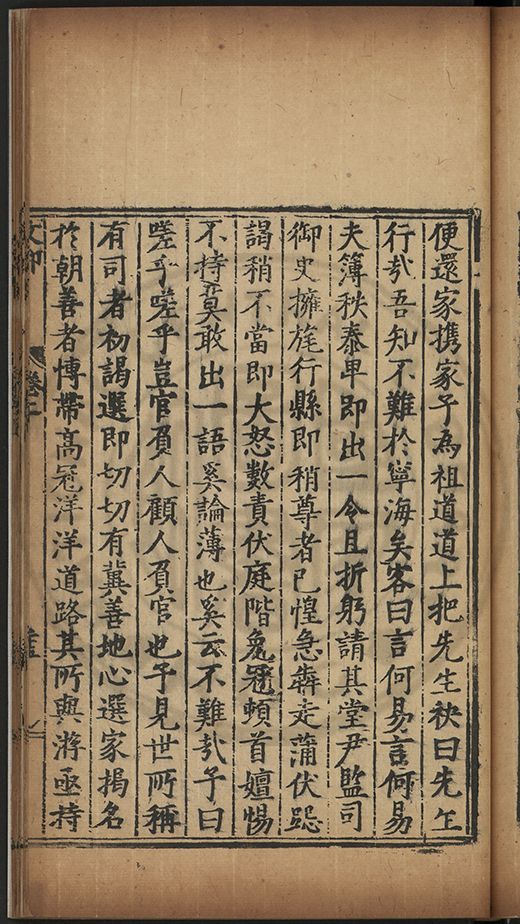 便還家携家予為祖道道上把先生袂曰先生
行㢤吾知不難於寧海矣客曰言何易言何易
夫簿秩泰卑即出一令且折躬請其堂尹監司
御史擁旄行縣即稍尊者已惶急犇走蒲伏跽
謁稍不當即大怒數責伏庭階免冠頓首嬗惕
不持莫敢出一語奚論薄也奚云不難㢤予曰
嗟乎嗟乎豈官負人顧人負官也予見世所稱
有司者初謁選即切切有冀善地心選家揭名
於朝善者愽帶高冠洋洋道路其所與游亟持